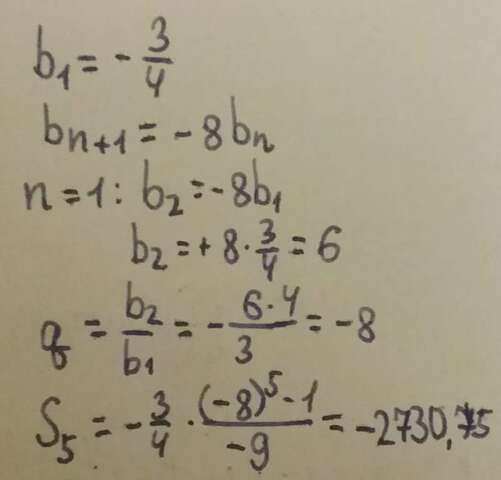 b₁ = - 3/4
bₙ₊₁ = - 8bₙ
n = 1 : b₂ = -8b₁
b₂ = + 8 · 3/4 = 6
q = b₂/b₁ = - 6·4/3 = -8
S₅ = - 3/4 · ((-8)⁵ - 1)/-9 = -2730,75